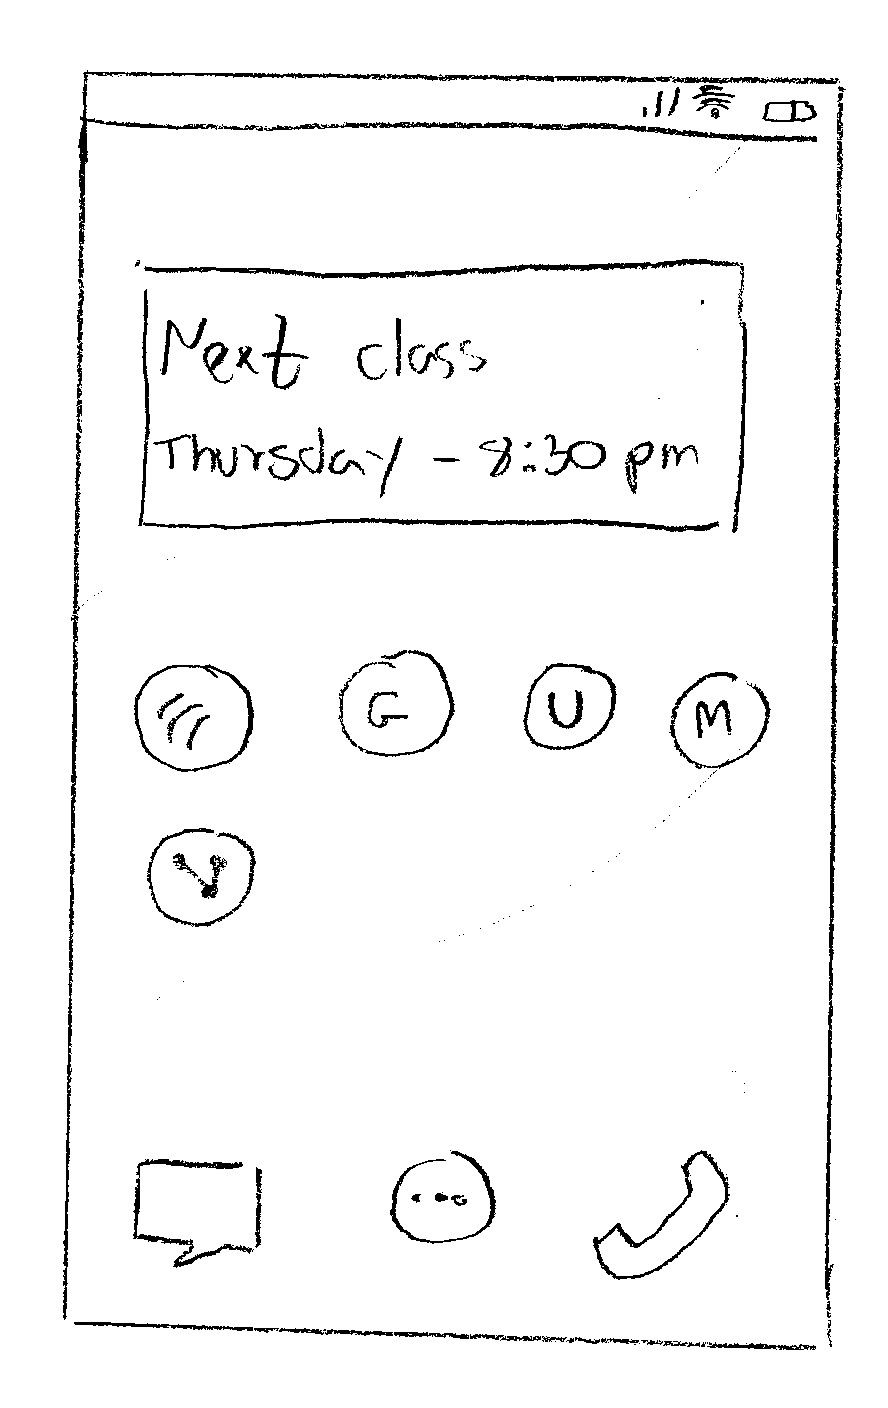 Next class
Thursday - 8:30 pm
G U M